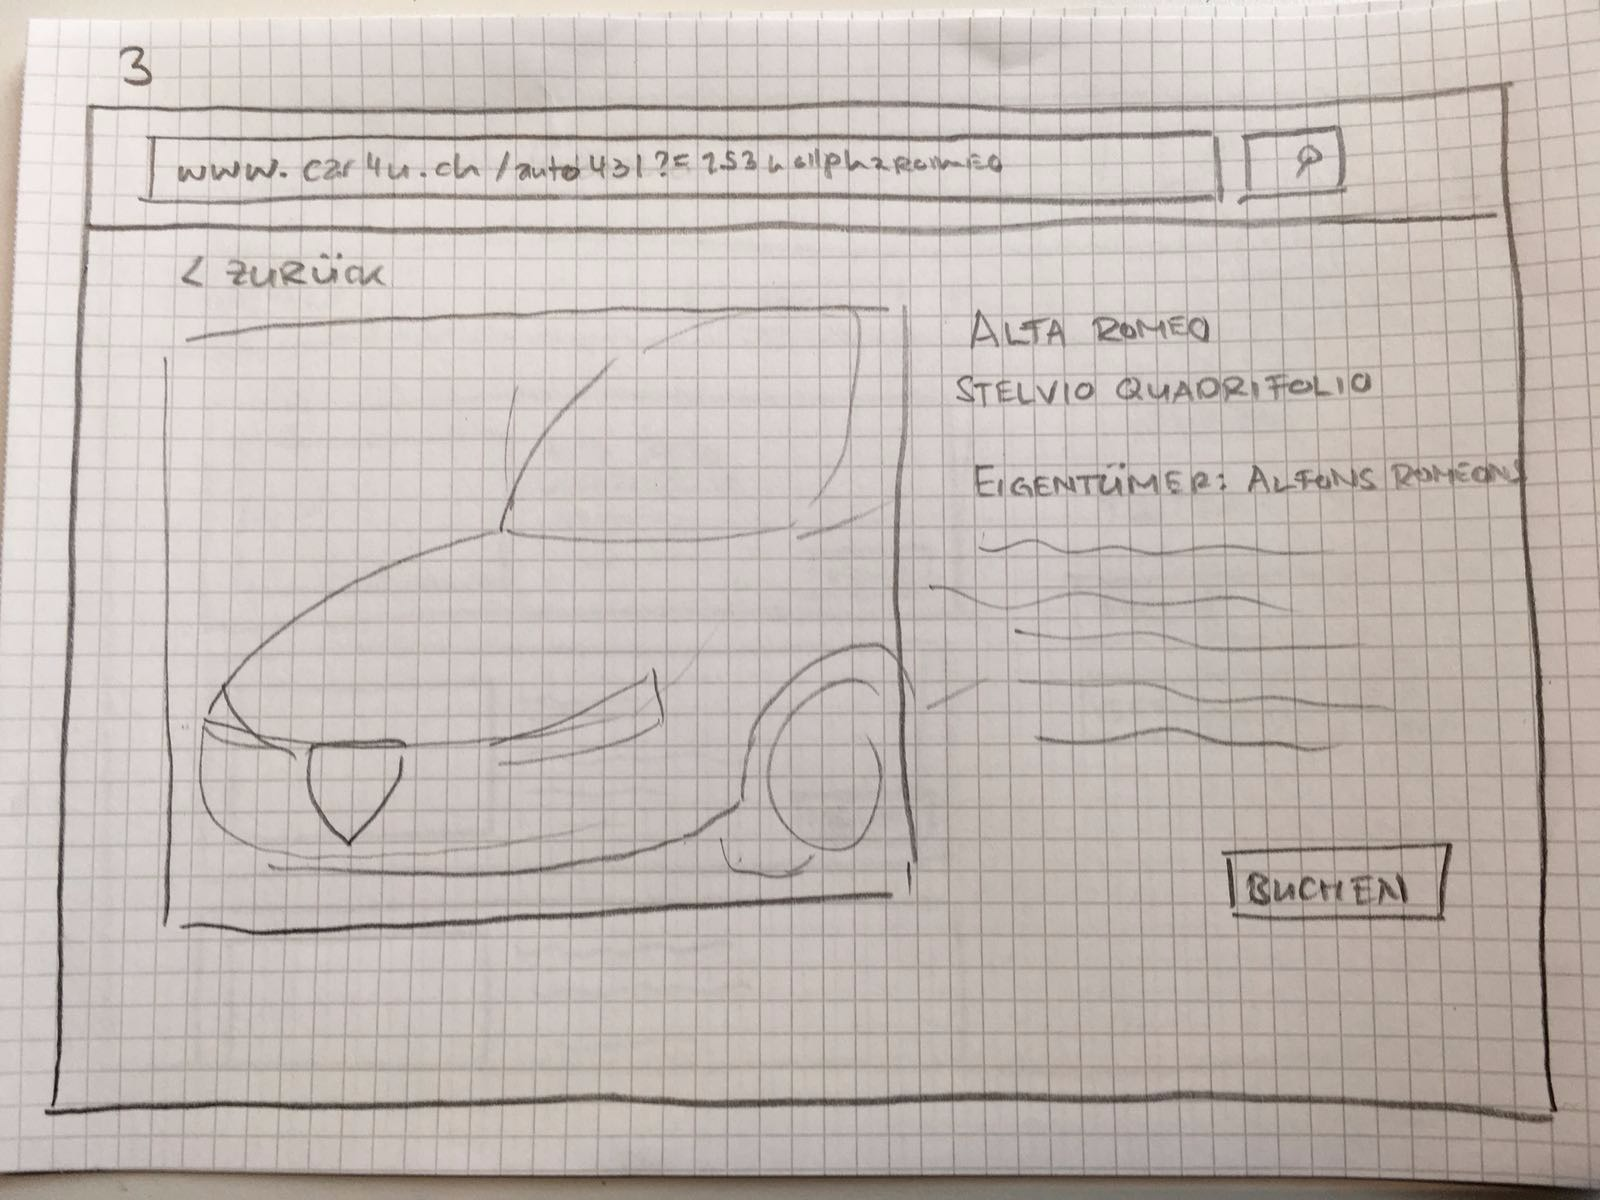 3
www.car4u.ch/auto431?=
< ZURÜCK
ALTA ROMEO
STELVIO QUADRIFOLIO
EIGENTÜMER: ALFONS ROMEONS
BUCHEN